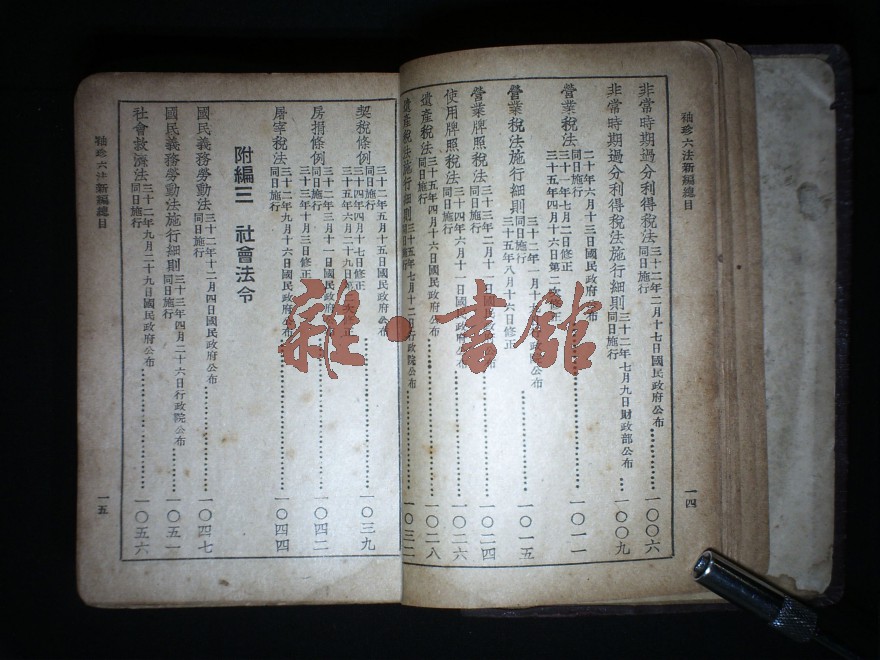 袖珍六法新編總目
一四
非常時期過分利得稅法 三十二年二月十七日國民政府公布 同日施行……一〇〇六
非常時期過分利得稅法施行細則 三十二年七月九日財政部公布 同日施行……一〇〇九
營業稅法 二十年六月十三日國民政府公布 同日施行 三十一年七月二日修正 三十五年四月十六日第二次修正……一〇一一
營業稅法施行細則 三十二年一月十 公布 同日施行 三十五年八月十六日修正……一〇一五
營業牌照稅法 三十一日國民政府公布 同日施行……一〇二四
使用牌照稅法 國民政府公布 同日施行……一〇二六
遺產稅法 三十五年四月十六日國民政府公布 同日施行……一〇二八
遺產稅法施行細則 三十五年七月十二日行政院公布 同日施行……一〇三二
契稅條例 三十二年五月十五日國民政府公布 同日施行 三十四年四月十七日修正 三十五年六月二十九日……一〇三九
房捐條例 三十二年三月十一日國民政府公布 同日施行 三十三年十月三日修正……一〇四二
屠宰稅法 三十二年九月十六日國民政府公布 同日施行……一〇四四
附編三 社會法令
國民義務勞動法 三十二年十二月四日國民政府公布 同日施行……一〇四七
國民義務勞動法施行細則 三十三年四月二十六日行政院公布 同日施行……一〇五一
社會救濟法 三十二年九月二十九日國民政府公布 同日施行……一〇五六
袖珍六法新編總目
一五
雜·書館